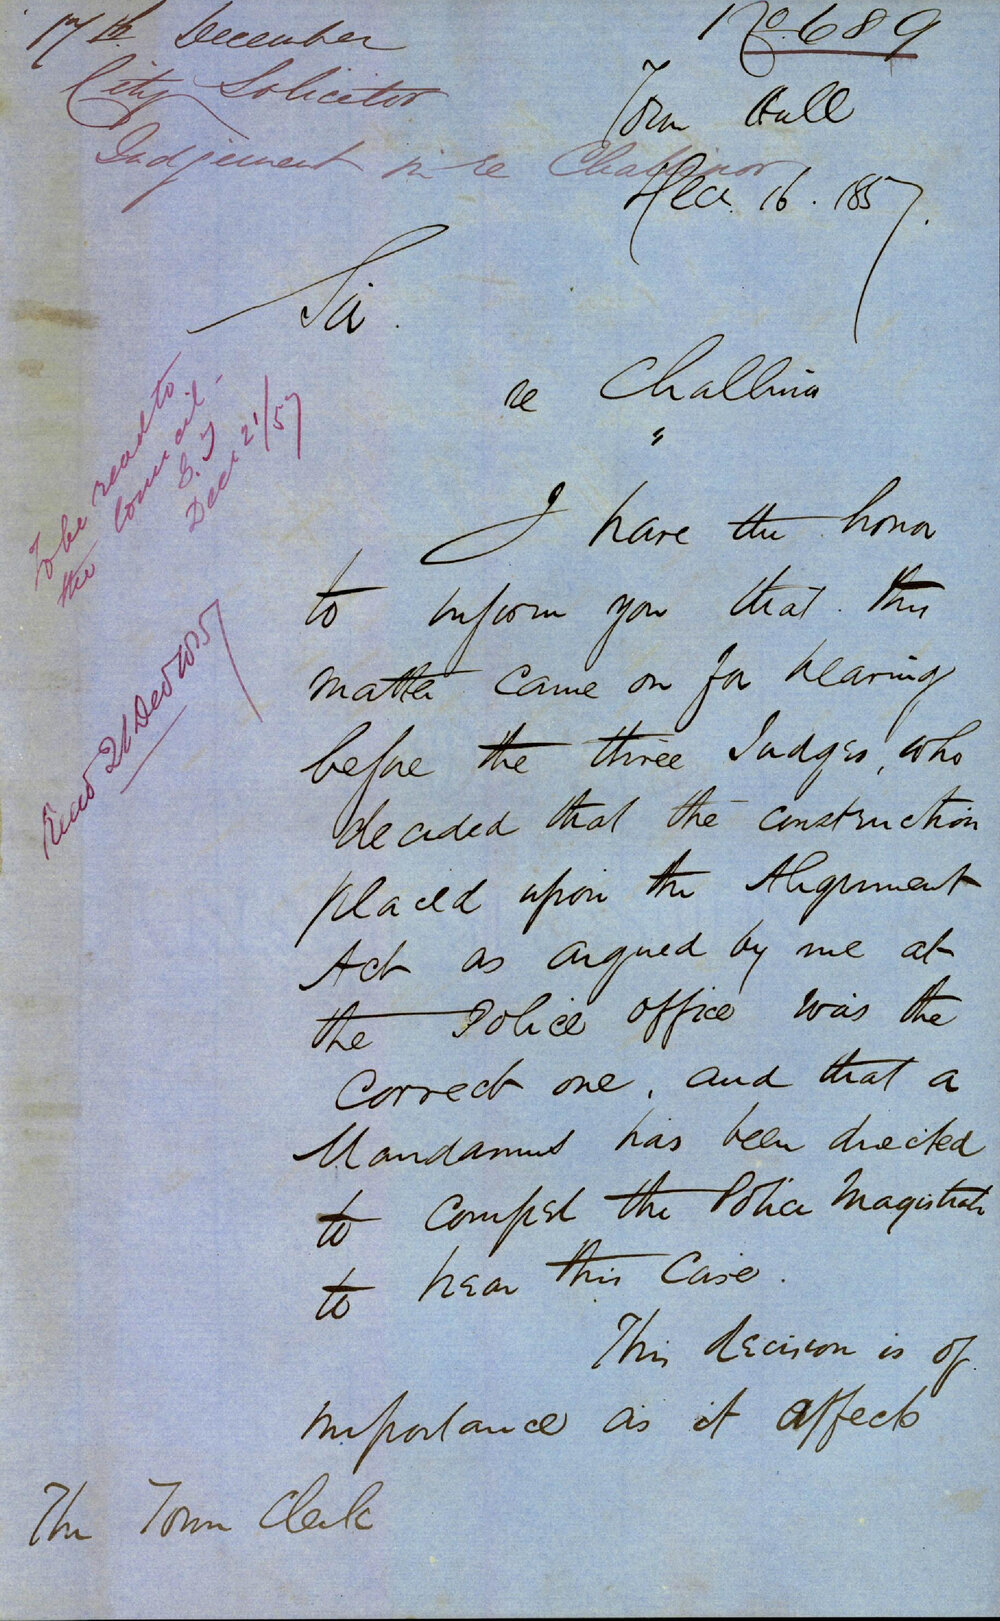 17th December
City Solicitor
Judgement in re Challinor
No. 689
Town Hall
Dec. 16. 1857.
Sir.
re Challinor
"
I have the honor
to inform you that this
matter came on for hearing
before the three Judges, who
decided that the construction
placed upon the Alignment
Act as argued by me at
the Police office was the
correct one, and that a
Mandamus has been directed
to compel the Police Magistrate
to hear this Case.
This decision is of
importance as it affects
The Town Clerk
To be read to
the Council -
Dec 21/57
Recd 21 Dec 1857